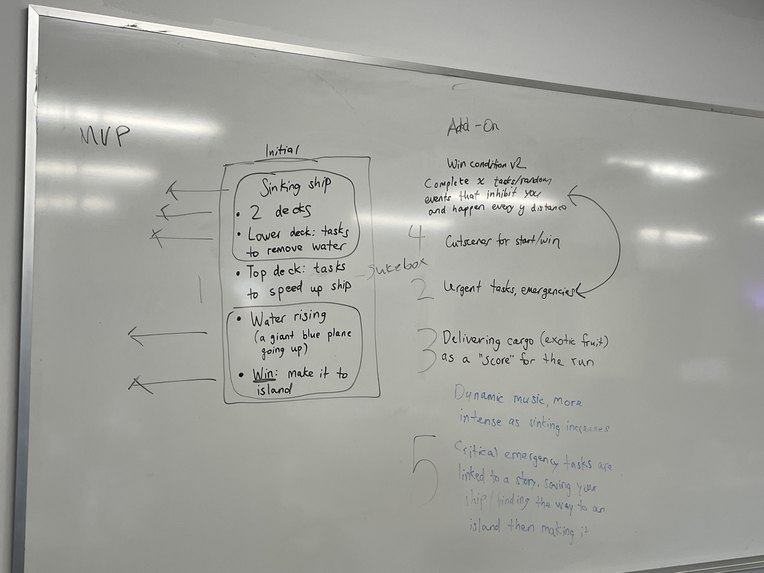 MVP
Initial
Sinking ship
• 2 decks
• Lower deck: tasks
to remove water
• Top deck: tasks
to speed up ship
Jukebox
• Water rising
(a giant blue plane
going up)
• Win: make it to
island
1
Add-On
Win condition v2
Complete x tasks/random
events that inhibit you
and happen every y distance
4
Cutscenes for start/win
2
Urgent tasks, emergencies
3
Delivering cargo (exotic fruit)
as a "score" for the run
Dynamic music, more
intense as sinking increases
5
Critical emergency tasks are
linked to a story, saving your
ship/finding the way to an
island then making it